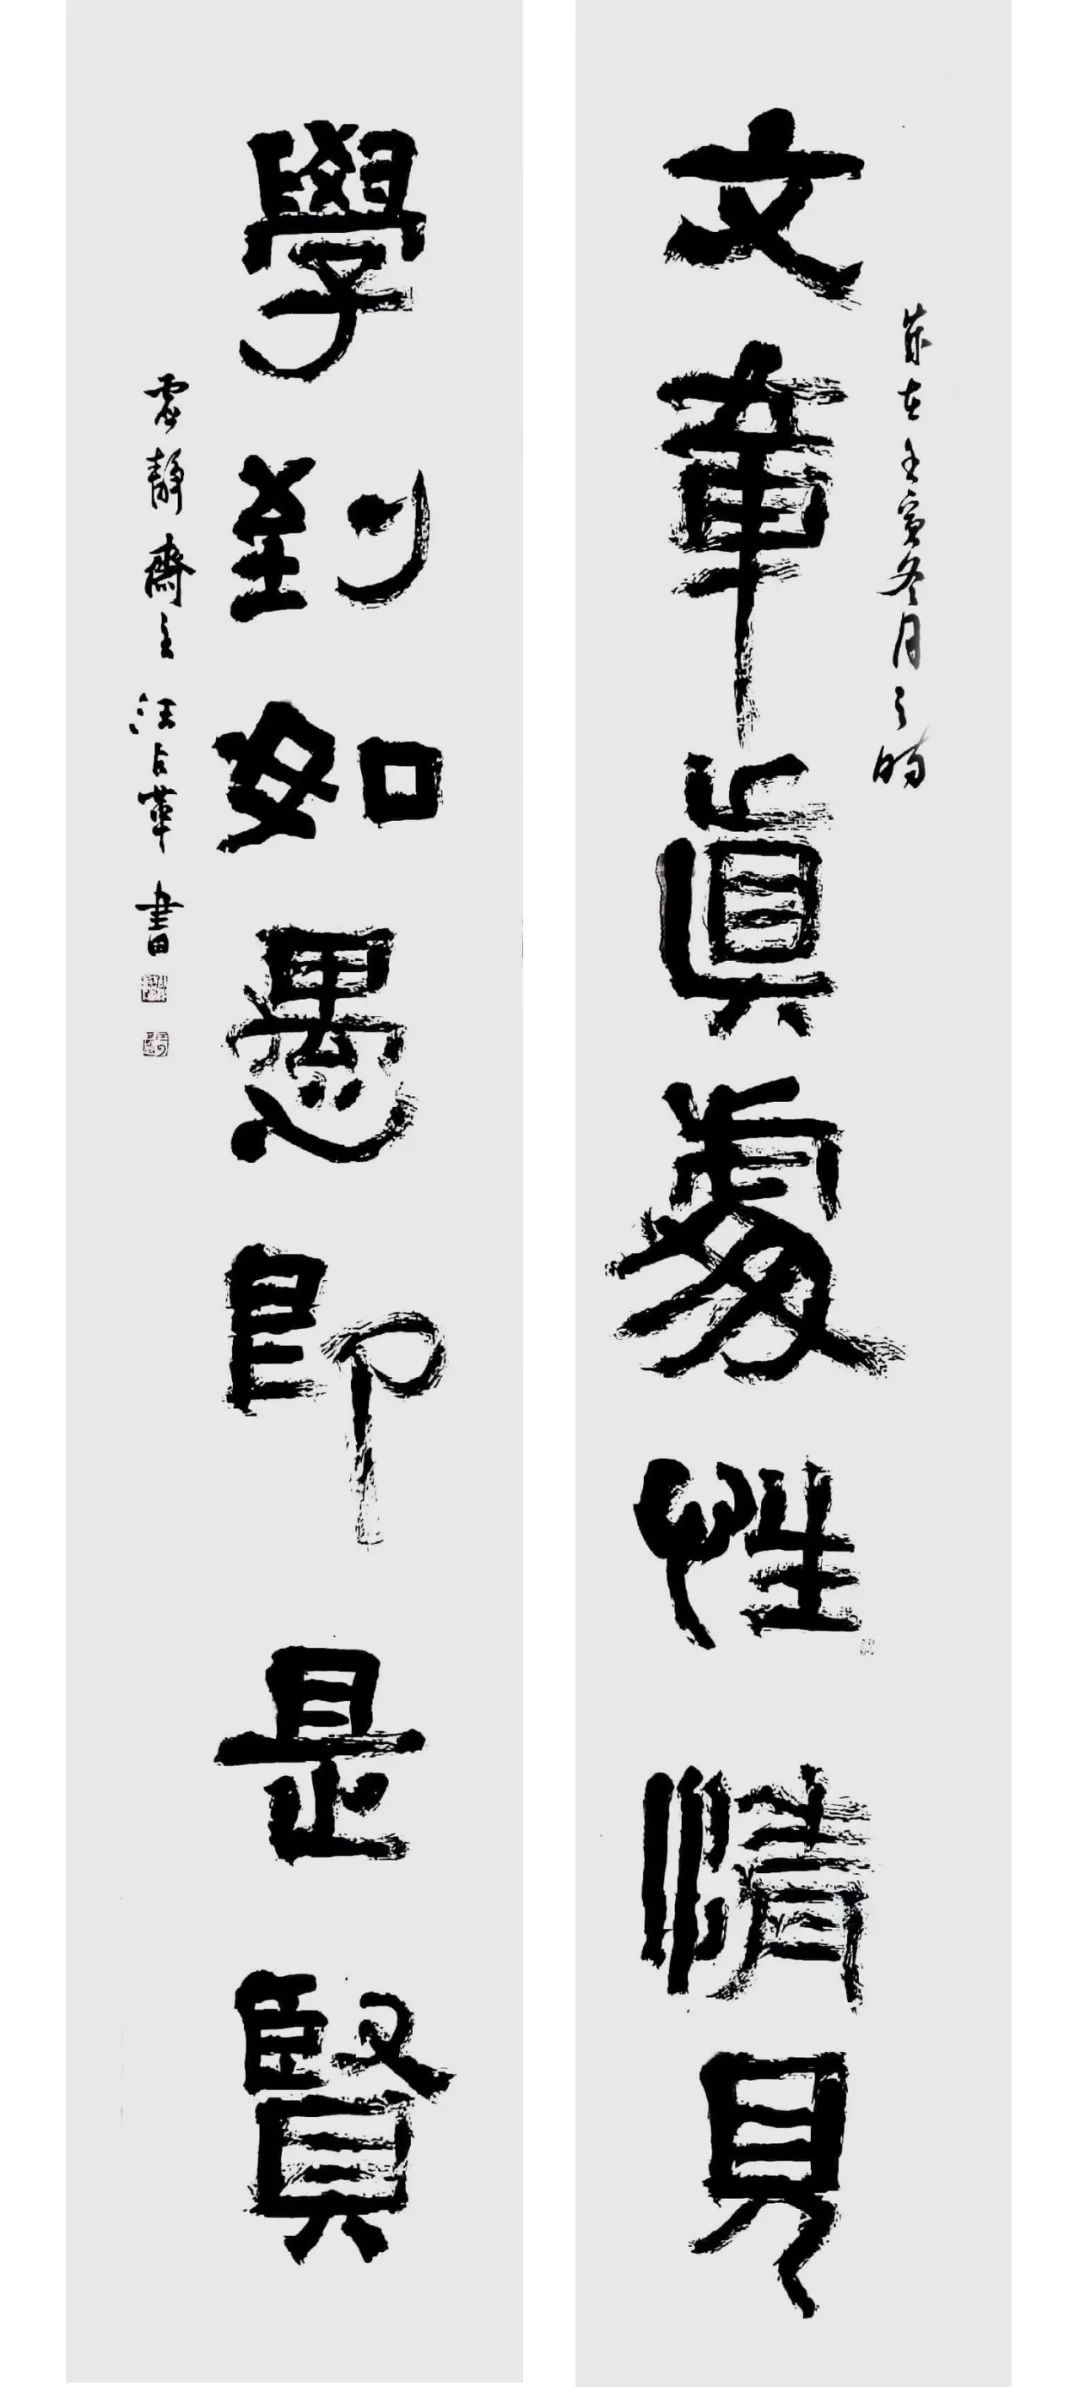 歲在壬寅冬月之時
文章真處性情見
學到如愚即是賢
虛靜齋主汪占華書